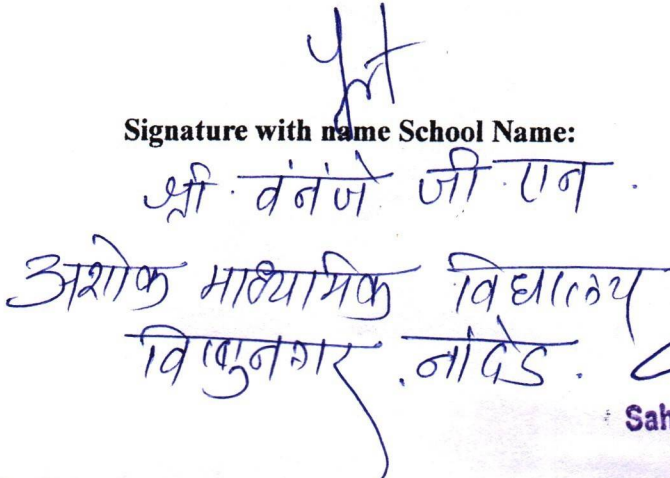 Signature with name School Name:
श्री. वंनंजे जी. एन.
अशोक माध्यामिक विद्यालय
विष्णुनगर, नांदेड.
Sah